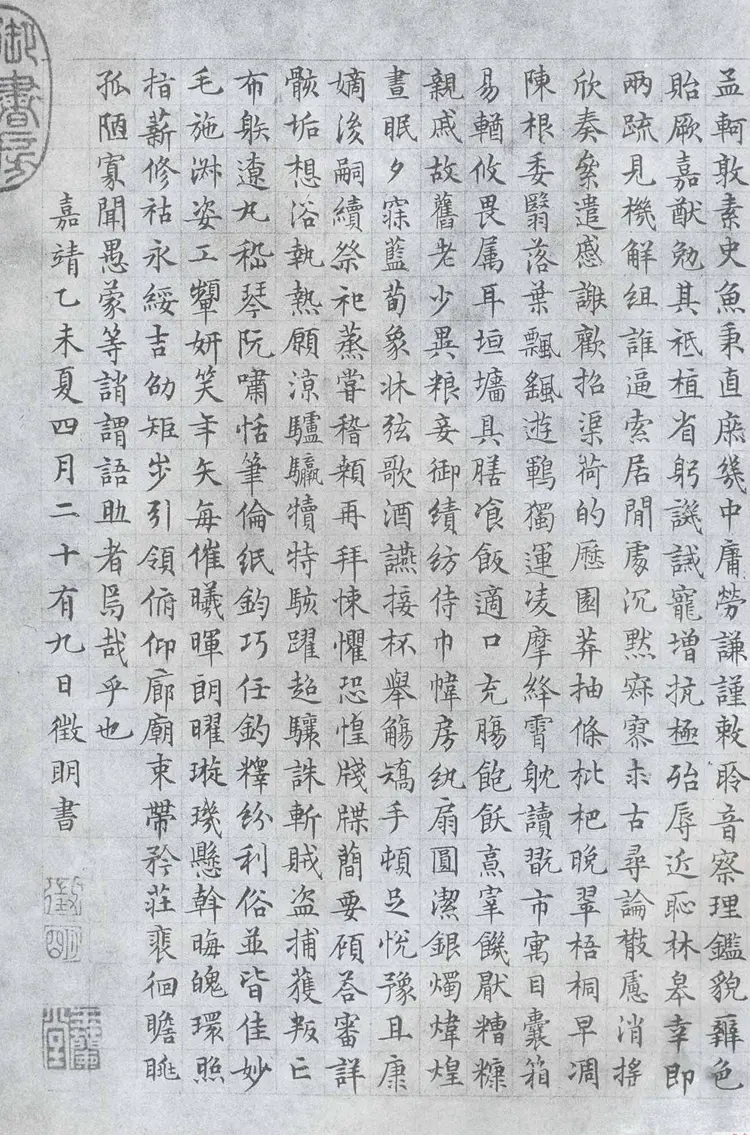 孟軻敦素史魚秉直庶幾中庸勞謙謹敕聆音察理鑑貌辨色
貽厥嘉猷勉其祗植省躬譏誡寵增抗極殆辱近恥林皋幸即
两疏見機解組誰逼索居閒處沉默寂寥求古尋論散慮消搖
欣奏累遣慼謝歡招渠荷的歷園莽抽條枇杷晚翠梧桐早凋
陳根委翳落葉飄颻遊鵾獨運凌摩絳霄耽讀翫市寓目囊箱
易輶攸畏属耳垣墻具膳飡飯適口充腸飽飫烹宰饑厭糟糠
親戚故舊老少異粮妾御績紡侍巾帷房紈扇圓潔銀燭煒煌
晝眠夕寐藍筍象牀弦歌酒讌接杯舉觴矯手頓足悅豫且康
嫡後嗣續祭祀蒸嘗稽顙再拜悚懼恐惶牋牒簡要顧答審詳
骸垢想浴執熱願涼驢騾犢特駭躍超驤誅斬賊盜捕獲叛亡
布射遼丸嵇琴阮嘯恬筆倫紙鈞巧任釣釋紛利俗並皆佳妙
毛施淑姿工顰妍笑年矢每催曦暉朗曜璇璣懸斡晦魄環照
指薪修祜永綏吉劭矩步引領俯仰廊廟束帶矜莊裴徊瞻眺
孤陋寡聞愚蒙等誚謂語助者焉哉乎也
嘉靖乙未夏四月二十有九日徵明書
徵明
玉蘭堂
御書房